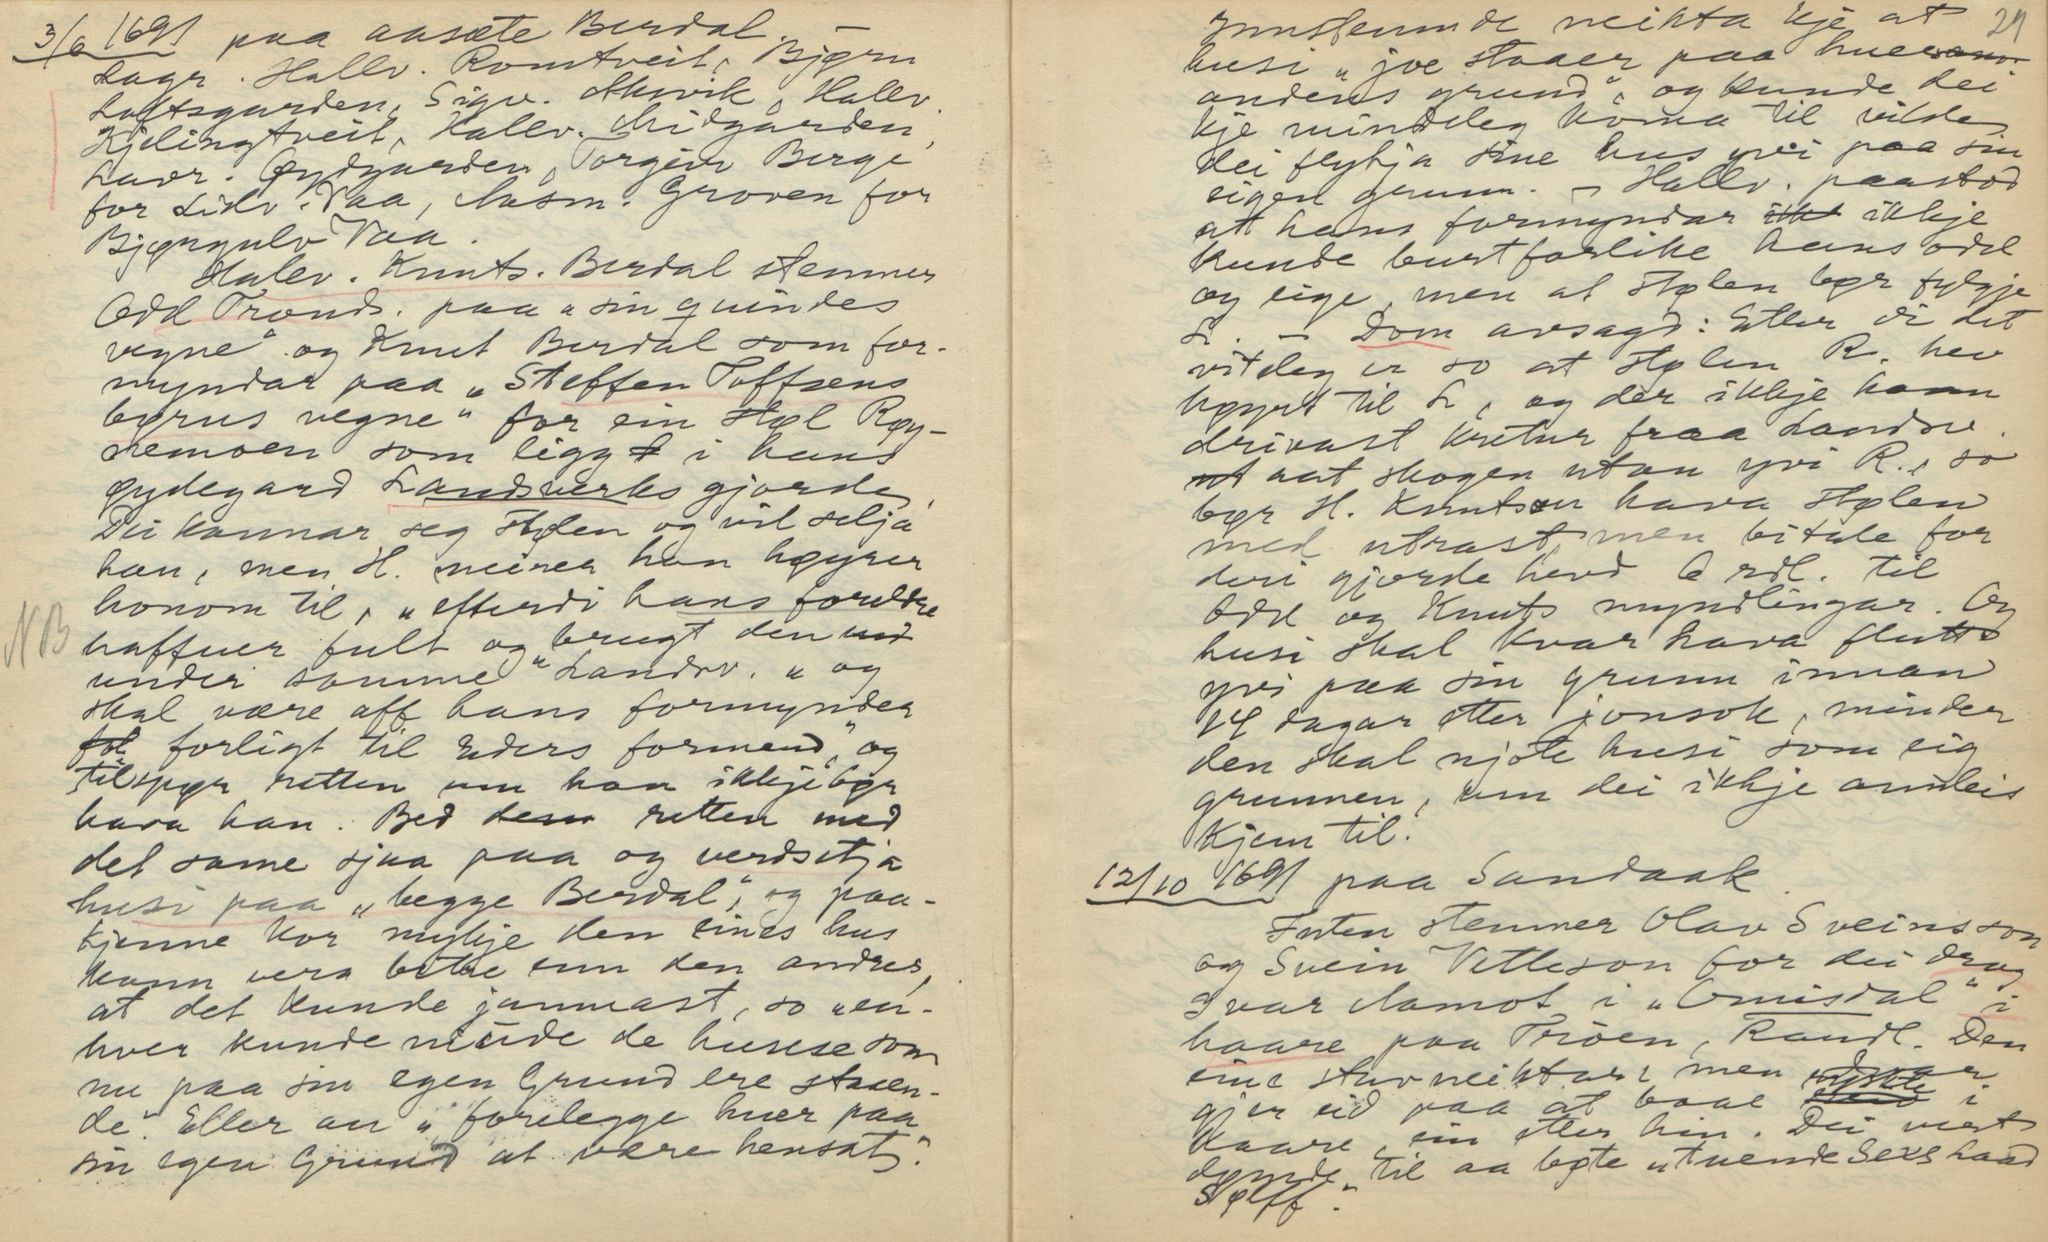 3/6 1691 paa aasæte Berdal. —
Lagr. Hallv. Romtveit, Bjørn
Loftsgarden, Sigv. Midvik, Hallv.
Kjelingtveit, Hallv. Midgarden,
Lavr. Øydgarden, Torgeir Berge
for Lidv. Vaa, Aasm. Groven for
Bjørgulv Vaa.
Halv. Knuts. Berdal stemner
Odd Tronds. paa "sin quindes
vegne" og Knut Berdal som for-
myndar paa "Steffen Toffsens
børns vegne" for ein støl Røy-
nemoen som ligg i hans
øydegard Landsverks gjorde.
Dei kannar seg stølen og vil selja
han, men H. meiner han høyrer
honom til, "efterdi hans foreldre
haffuer fult og brugt den ud
under samme" Landsv. " og
skal være aff hans formynder
forligt til Eders formend", og
tilspør retten um han ikkje bør
hava han. Bed dem retten med
det same sjaa paa og verdsetja
husi paa "begge Berdal", og paa-
kjenne kor mykje den eines hus
kann vera betre enn den andres,
at det kunde jamnast, so "en-
hver kunde niude de husse som
nu paa sin egen Grund ere staaen-
de". Eller au "forelegge huer paa
sin egen Grund at være hensat".
29
Innstemnde neikta kje at
husi "joe staaer paa huerann
andens grund", og kunde dei
kje mindeleg koma til vilde
dei flytja sine hus yvi paa sin
eigen grunn. — Hallv. paastod
at hans formyndar ikke ikkje
kunde burtforlike hans odel
og eige, men at stølen bør fylgje
L. — Dom avsagd: Etter di det
vitleg er so at stølen R. hev
høyrt til L, og der ikkje kann
drivast kretur fraa Landsv.
ut aat skogen utan yvi R., so
bør H. Knutson hava stølen
med utrast, men bitale for
deri gjorde hevd 6 rdl. til
Odd og Knuts myndlingar. Og
husi skal kvar hava flutt
yvi paa sin grunn innan
14 dagar etter jonsok, minder
den skal njote husi som eig
grunnen, um dei ikkje annleis
kjem til.
12/10 1691 paa Sandaak.
Futen stemner Olav Sveinsson
og Svein Vetleson for dei drog
Ivar Aamot i "Omisdal" i
haare paa Trøen, Raudl. Den
eine stavneiktar, men
gjer eid paa at baae i
haare, ein etter hin. Dei verts
dømde "til aa bøte utuende Sexs Laad
Sølff".